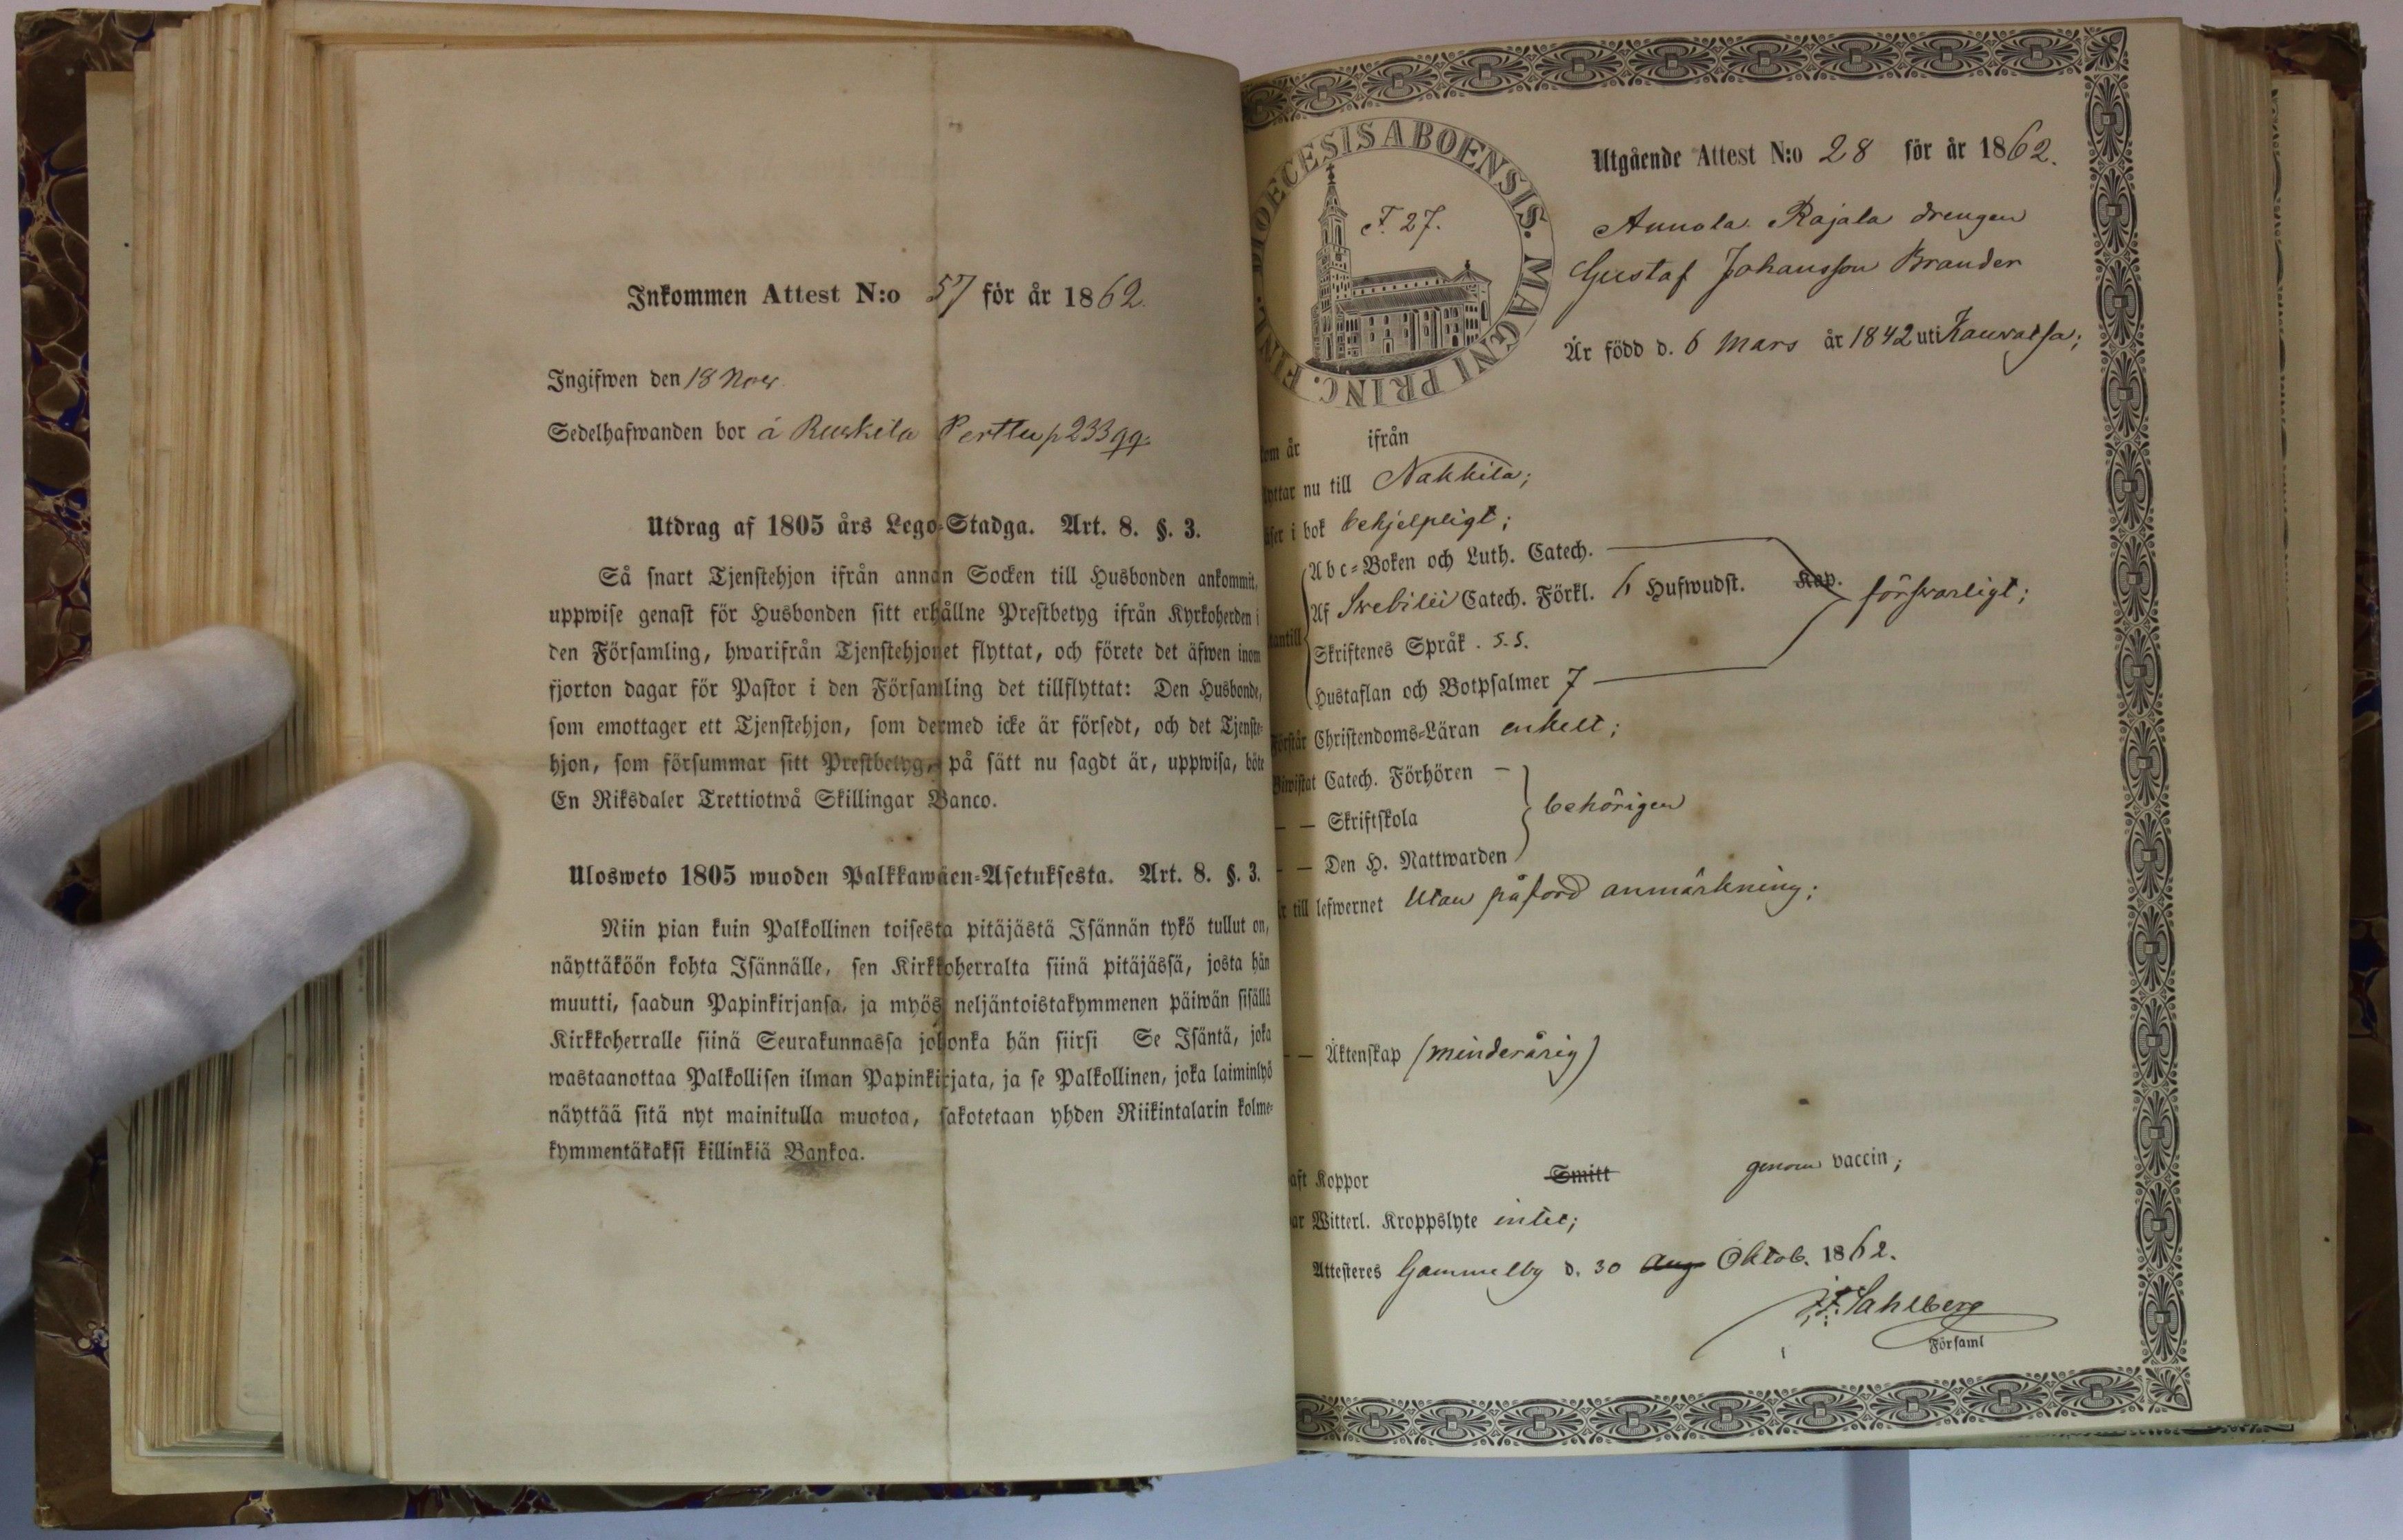 Inkommen Attest N:o 57 för år 1862.
Ingifwen den 18 Nov
Sedelhafwanden bor á Ruskila Perttu p 233 qq.
Utdrag af 1805 års Lego-Stadga. Art. 8. §. 3.
Så snart Tjenstehjon ifrån annan Socken till Husbonden ankommit,
uppwise genast för Husbonden sitt erhållne Prestbetyg ifrån Kyrkoherden i
den Församling, hwarifrån Tjenstehjonet flyttat, och förete det äfwen inom
fjorton dagar för Pastor i den Församling det tillflyttat: Den Husbonde,
som emottager ett Tjenstehjon, som dermed icke är försedt, och det Tjenste-
hjon, som försummar sitt Prestbetyg, på sätt nu sagdt är, uppwisa, böte
En Riksdaler Trettiotwå Skillingar Banco.
Ulosweto 1805 wuoden Palkkawäen-Asetuksesta. Art. 8. §. 3.
Niin pian kuin Palkollinen toisesta pitäjästä Isännän tykö tullut on,
näyttäköön kohta Isännälle, sen Kirkkoherralta siinä pitäjässä, josta hän
muutti, saadun Papinkirjansa, ja myös neljäntoistakymmenen päiwän sisällä
Kirkkoherralle siinä Seurakunnassa johonka hän siirsi Se Isäntä, joka
wastaanottaa Palkollisen ilman Papinkirjata, ja se Palkollinen, joka laiminlyö
näyttää sitä nyt mainitulla muotoa, sakotetaan yhden Riikintalarin kolme-
kymmentäkaksi killinkiä Bankoa.
DIOECESIS ABOENSIS. MAGNI PRINC. FINL.
F. 27.
Utgående Attest N:o 28 för år 1862.
Annola Rajala drengen
Gustaf Johansson Brander
Är född d. 6 Mars år 1842 uti Kauvatsa;
om år ifrån
yttar nu till Nakkila;
äser i bok behjelpligt;
Abc-Boken och Luth. Catech.
Af Svebilii Catech. Förkl. 6 Hufwudst. Kap. försvarligt;
antill
Skriftenes Språk. s.s.
Hustaflan och Botpsalmer 7
Förstår Christendoms-Läran enkelt;
Biwistat Catech. Förhören –
— — Skriftskola behörigen
— — Den H. Nattwarden
r till lefwernet Utan påförd anmärkning;
— — Äktenskap (minderårig)
aft Koppor Smitt genom vaccin;
ar Witterl. Kroppslyte intet;
Attesteres Gammelby d. 30 Aug Oktob. 1862.
J.F. Sahlberg
Församl